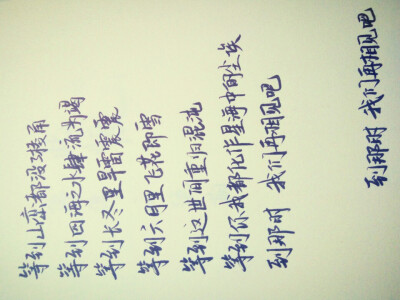 等到山峦都没了棱角
等到四海之水肆流为竭
等到长冬里旱雷震震
等到六月里飞花即雪
等到这世间重归混沌
等到你我都化作星海中的尘埃
到那时 我们再相见吧
到那时 我们再相见吧